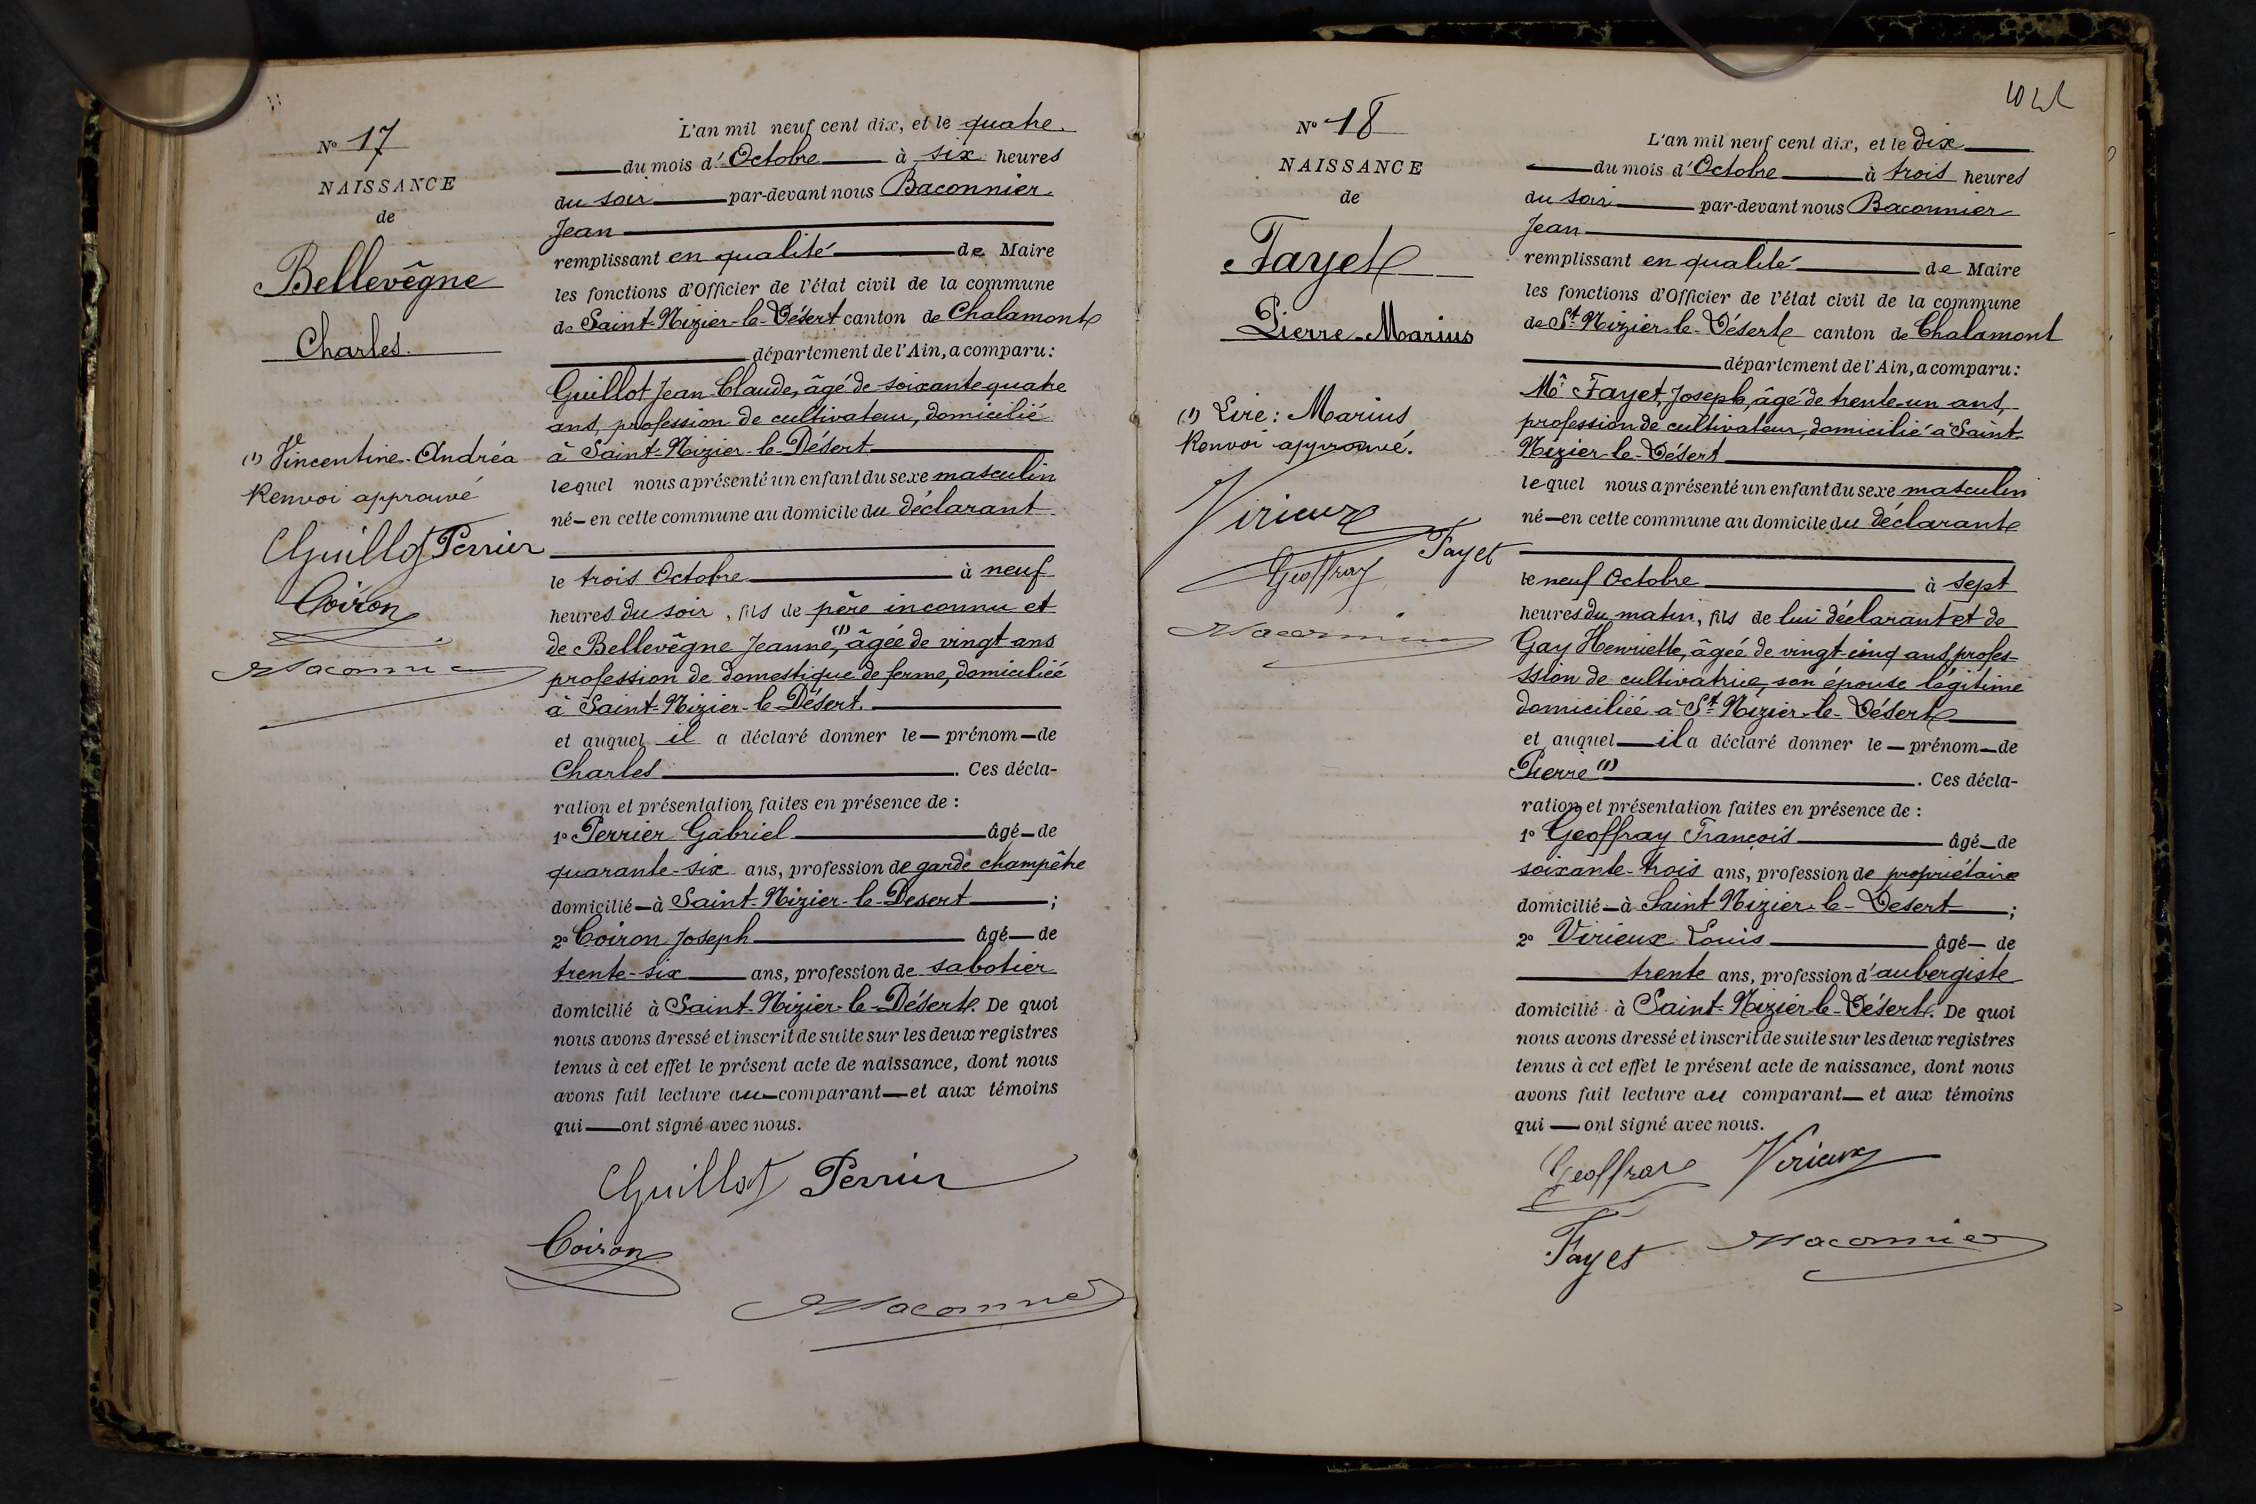 N° 17
NAISSANCE
de
Bellevêgne
Charles.
(1) Vincentine-Andréa
Renvoi approuvé
Guillot Perrier
Coiron
Baconnier
L'an mil neuf cent dix, et le quatre
du mois d'Octobre à six heures
du soir par-devant nous Baconnier
Jean
remplissant en qualité de Maire
les fonctions d'Officier de l'état civil de la commune
de Saint-Nizier-le-Désert canton de Chalamont
département de l'Ain, a comparu:
Guillot Jean Claude, âgé de soixante quatre
ans, profession de cultivateur, domicilié
à Saint-Nizier-le-Désert
lequel nous a présenté un enfant du sexe masculin
né en cette commune au domicile du déclarant
le trois Octobre à neuf
heures du soir, fils de père inconnu et
de Bellevêgne Jeanne,(1) âgée de vingt ans
profession de domestique de ferme, domiciliée
à Saint-Nizier-le-Désert.
et auquel il a déclaré donner le prénom de
Charles. Ces décla-
ration et présentation faites en présence de :
1° Perrier Gabriel âgé de
quarante-six ans, profession de garde champêtre
domicilié à Saint-Nizier-le-Desert ;
2° Coiron Joseph âgé de
trente-six ans, profession de sabotier
domicilié à Saint-Nizier-le-Désert. De quoi
nous avons dressé et inscrit de suite sur les deux registres
tenus à cet effet le présent acte de naissance, dont nous
avons fait lecture au comparant et aux témoins
qui ont signé avec nous.
Guillot Perrier
Coiron
Baconnier
N° 18
NAISSANCE
de
Fayet
Pierre-Marius
(1) Lire: Marius
Renvoi approuvé.
Virieux
Fayet
Geoffray
Baconnier
L'an mil neuf cent dix, et le dix
du mois d'Octobre à trois heures
du soir par-devant nous Baconnier
Jean
remplissant en qualité de Maire
les fonctions d'Officier de l'état civil de la commune
de St Nizier-le-Désert canton de Chalamont
département de l'Ain, a comparu:
Mr Fayet, Joseph, âgé de trente-un ans,
profession de cultivateur, domicilié à Saint-
Nizier-le-Désert
lequel nous a présenté un enfant du sexe masculin
né en cette commune au domicile du déclarant
le neuf Octobre à sept
heures du matin, fils de lui déclarant et de
Gay Henriette, âgée de vingt-cinq ans, profes-
ssion de cultivatrice, son épouse légitime
domiciliée à St Nizier-le-Désert
et auquel il a déclaré donner le prénom de
Pierre (1). Ces décla-
ration et présentation faites en présence de :
1° Geoffray François âgé de
soixante-trois ans, profession de propriétaire
domicilié à Saint Nizier-le-Desert ;
2° Virieux Louis âgé de
trente ans, profession d'aubergiste
domicilié à Saint-Nizier-le-Désert. De quoi
nous avons dressé et inscrit de suite sur les deux registres
tenus à cet effet le présent acte de naissance, dont nous
avons fait lecture au comparant et aux témoins
qui ont signé avec nous.
Geoffray Virieux
Fayet Baconnier